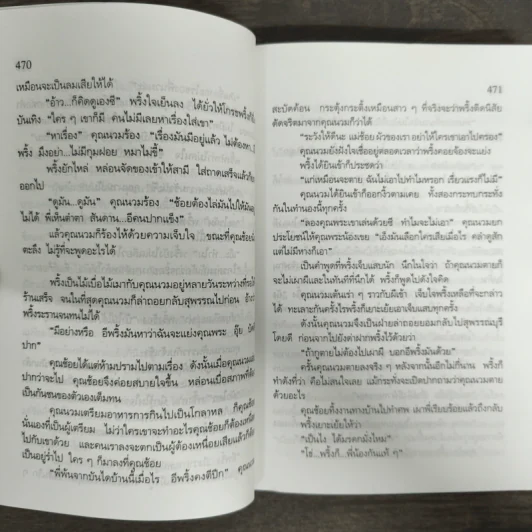 470
เหมือนจะเป็นลมเสียให้ได้
"อ้าว...ก็คิดดูเองซี" พริ้งใจเย็นลง ได้ยั่วให้โกรธพริ้งก็
บันเทิง "ใคร ๆ เขาก็มี คนไม่มีเลยหาเรื่องใส่เขา"
"หาเรื่อง" คุณนวมร้อง "เรื่องมันมีอยู่แล้ว ไม่ต้องหา
พริ้ง มึงอย่า...ไม่มีกูมฝอย หมาไม่ขี้"
พริ้งยักไหล่ หล่อนจัดของเข้าให้สามี ใส่ถาดเสร็จแล้วก็
ออกไป
"ดูมัน...ดูมัน" คุณนวมร้อง "ช้อยต้องไล่มันไปให้
ไม่ได้ พี่เห็นตำตา สันดาน...อีคนปากแข็ง"
แล้วคุณนวมก็ร้องไห้ด้วยความเจ็บใจ ขณะที่คุณช้อย
ตะลึง ไม่รู้ที่จะพูดอะไรได้
พริ้งเป็นไม้เบื่อไม้เมากับคุณนวมอยู่หลายวันระหว่างที่
ร้านเสร็จ จนในที่สุดคุณนวมก็ล่าถอยกลับสุพรรณไปก่อน
พริ้งระรานจนทนไม่ได้
"มีอย่างหรือ อีพริ้งมันหาว่าฉันจะแย่งคุณพระ อุ๊ย
ปาก"
คุณช้อยได้แต่ห้ามปรามไปตามเรื่อง ดังนั้นเมื่อคุณนวม
ปากว่าจะไป คุณช้อยจึงค่อยสบายใจขึ้น หล่อนเบื่อสภาพที่
เป็นกันชนของตัวเองเต็มทน
คุณนวมเตรียมอาหารการกินไปเป็นโกลาหล ก็คุณช้อย
นั่นเองที่เป็นผู้เตรียม ไม่ว่าใครเขาจะทำอะไรคุณช้อยก็ต้อง
ไปกับเขาด้วย และคนเราลงจะตกเป็นผู้ต้องเหนื่อยเสียแล้วก็
เป็นอยู่ร่ำไป ใคร ๆ ก็มาลงที่คุณช้อย
"พี่พ้นจากบันไดบ้านนี้เมื่อไร อีพริ้งคงตีปีก"
471
สะบัดค้อน กระตุ้งกระติ้งเหมือนสาว ๆ ที่จริงจะว่าพริ้งติดนิสัย
ดัดจริตมาจากคุณนวมก็ว่าได้
"ระวังให้ดีนะ แม่ช้อย ผัวของเรา อย่าให้ใครเขาเอาไปครอง"
คุณนวมยังฝังใจเชื่ออยู่ตลอดเวลาว่าพริ้งคอยจ้องจะแย่ง
พริ้งได้ยินเข้าก็ประชดว่า
"แก่เหมือนจะตาย ฉันไม่เอาไปทำไมหรอก เรี่ยวแรงก็ไม่มี"
คุณนวมได้ยินเข้าก็ออกงิ้วตามเคย ทั้งสองกระทบกระทั่ง
กันในทำนองนี้ทุกครั้ง
"ลองคุณพระเขาเล่นด้วยซี ทำไมจะไม่เอา" คุณนวมยก
ประโยชน์ให้คุณพระน้องเขย "เอ็งมันเลือกใครเสียเมื่อไร คล่ำดูสักก
แต่ไม่มีหางก็เอา"
เป็นคำพูดที่พริ้งเจ็บแสบนัก นึกในใจว่า ถ้าคุณนวมตายก็
จะไม่เผาผีและในทันทีที่นึกได้ พริ้งก็พูดไปดังใจคิด
คุณนวมเต้นเร่า ๆ ราวกับผีเข้า เจ็บใจพริ้งเหลือที่จะกล่าว
ได้ ทะเลาะกันครั้งไรพริ้งก็เยาะเย้ยเอาเจ็บแสบทุกครั้ง
ดังนั้นคุณนวมจึงเป็นฝ่ายล่าถอยยอมกลับไปสุพรรณบุรี
โดยดี ก่อนจากไปยังด่าฝากพริ้งไว้ด้วยว่า
"ถ้ากูตายไม่ต้องไปเผาผี บอกอีพริ้งมันด้วย"
ครั้นคุณนวมตายลงจริง ๆ หลังจากนั้นอีกไม่กี่นาน พริ้งก็
ทำดังที่ว่า คือไม่สนใจเลย แม้กระทั่งจะเอ่ยปากถามว่าคุณนวมตาย
ด้วยอะไร
คุณช้อยทิ้งงานทางบ้านไปทำศพ เผาพี่เรียบร้อยแล้วถึงกลับ
พริ้งเยาะเย้ยให้ว่า
"เป็นไง ได้มรดกมั่งไหม"
"โธ่...พริ้งก็...พี่น้องกันแท้ ๆ"